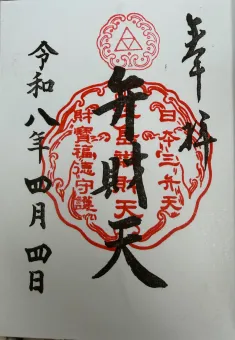 奉拝
日本三弁天
弁財天
江島辨財天
財寶福徳守護
令和八年四月四日